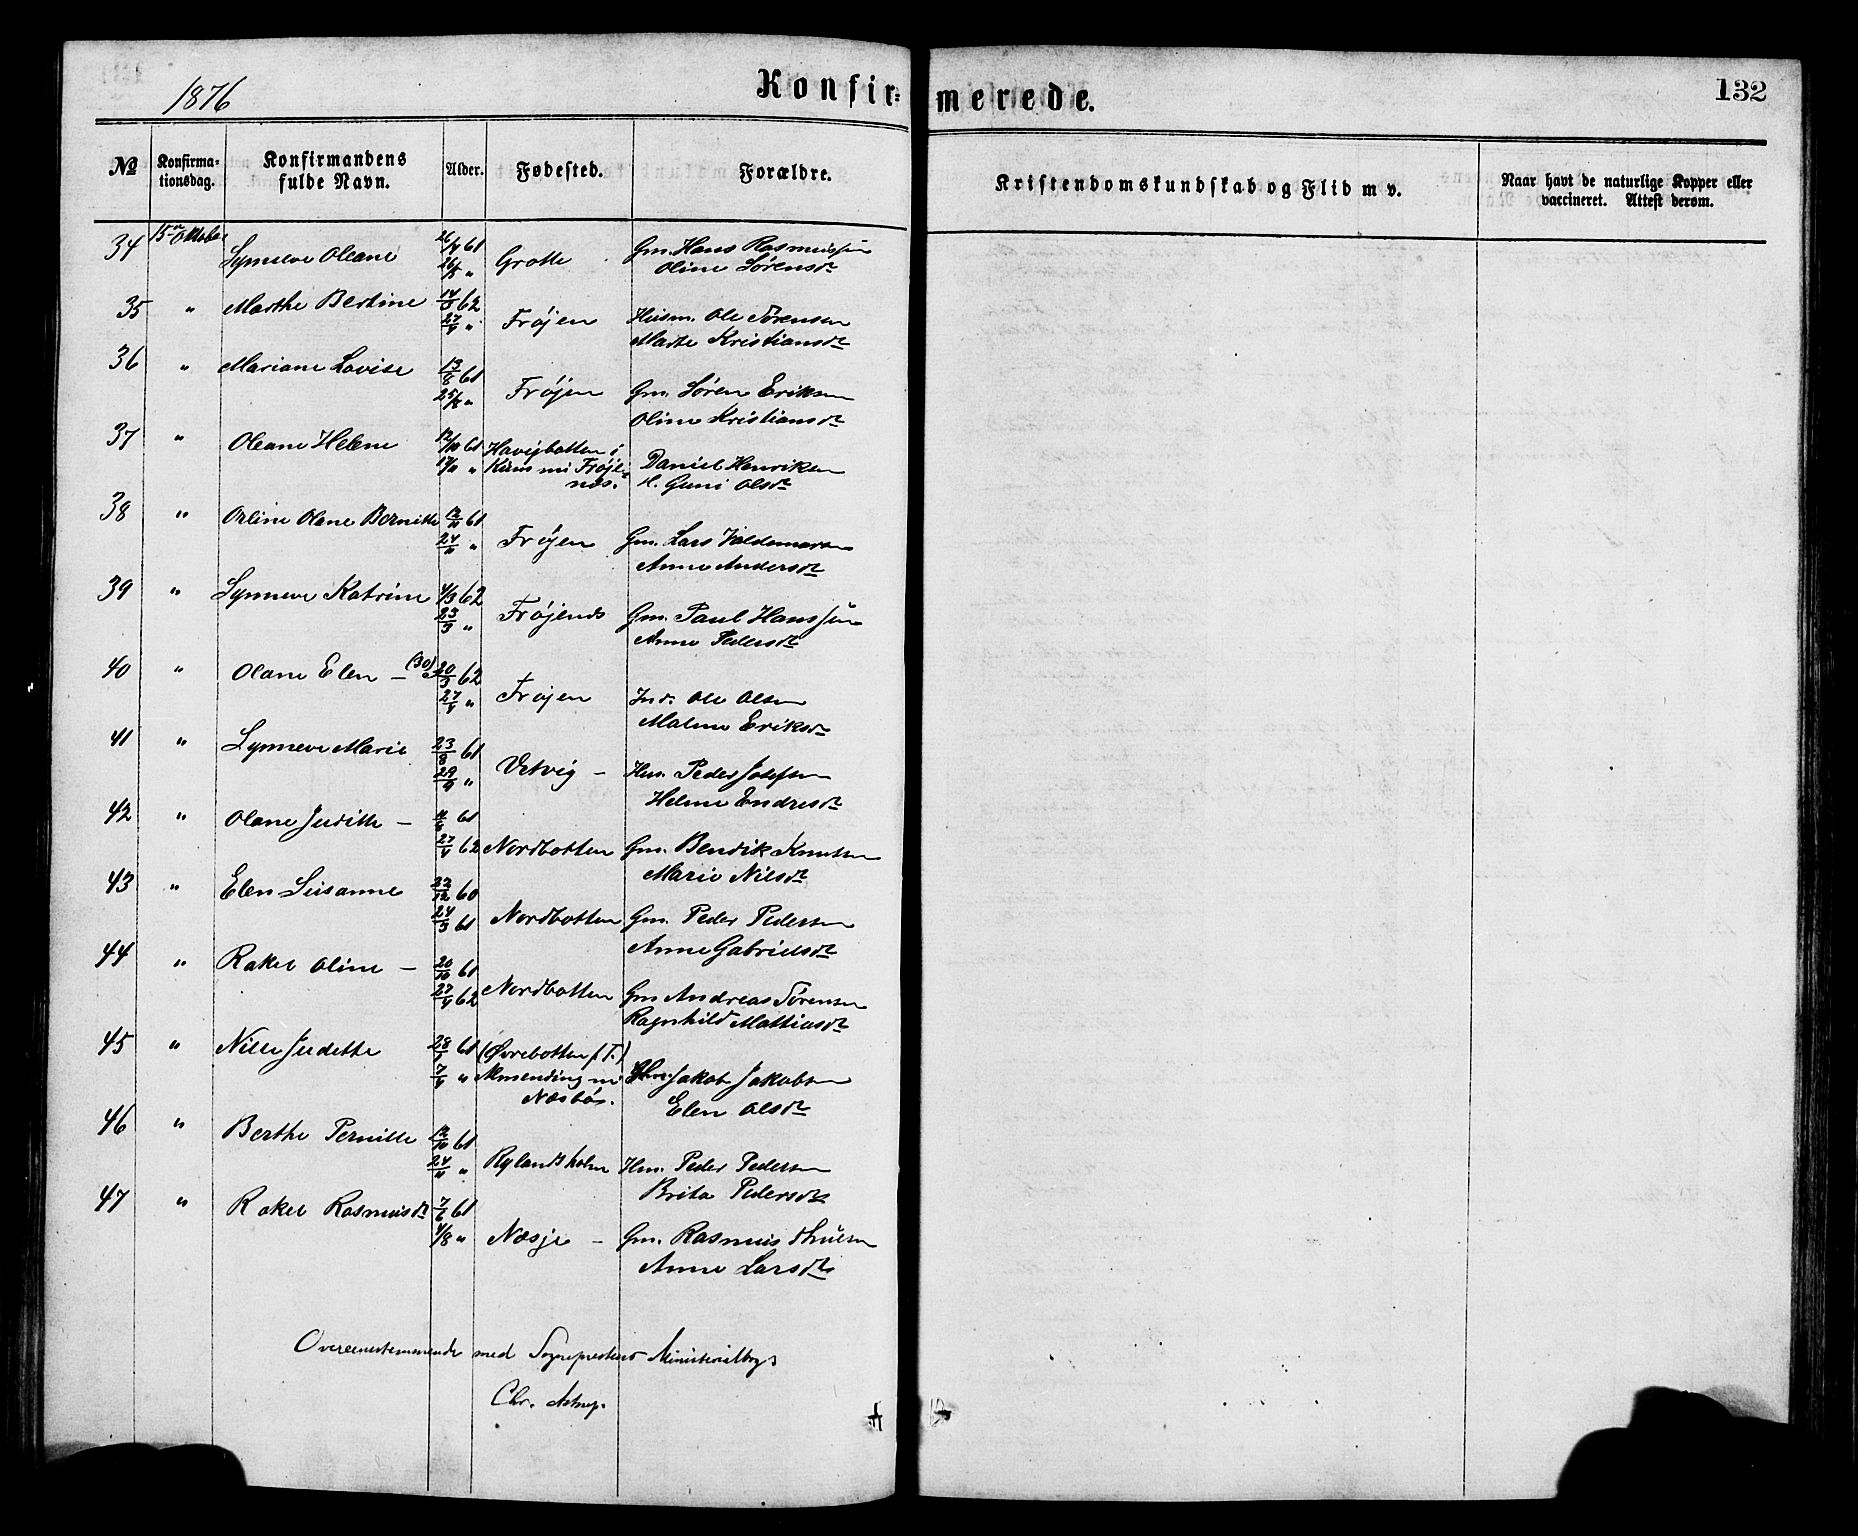 1876
Konfir=
merede.
132
№ Konfirma=tionsdag. Konfirmandens fulde Navn. Alder. Fødested. Forældre. Kristendomskundskab og Flid m v. Naar havt de naturlige Kopper eller vaccineret. Attest derom.
34 15de Oktober Synneve Oleane 61 Grotle Gm. Hans Rasmussen
26/5 " Oline Sørensdt
35 " Marthe Bertine 62 Frøjen Husm. Ole Sørensen
27/4 " Marte Kristiansdt
36 " Mariane Lovise 13/8 61 Frøjen Gm. Søren Eriksen
25/8 " Oline Kristiansdt
37 " Oleane Helene 12/10 61 Havigbotten i Daniel Henriksen
17/11 " Frøje- H. Guni Olsdt
nes.
38 " Orline Olane Bernitte 61 Frøjen Gm. Lars Valdemarsen
24/11 " Anne Andersdt
39 " Synneve Katrine 4/3 62 Frøjends Gm. Paul Hanssen
23/3 " Anne Pedersdt
40 " Olane Elen — (30) 20/3 62 Frøjen Ind. Ole Olsen
27/4 " Malene Eriksdt
41 " Synneve Marie 23/8 61 Vetvig — Hm. Peder Josefsen
29/9 " Helene Endresdt
42 " Olane Judith — 61
27/4 62 Nordbotten Gm. Bendik Knutsen
Marie Nilsdt
43 " Elen Susanne 22/12 60
24/3 61 Nordbotten Gm. Peder Pedersen
Anne Gabrielsdt
44 " Rakel Oline — 20/10 61
27/4 62 Nordbotten Gm Andreas Sørensen
Ragnhild Mathiasdt
45 " Nille Judethe 28/1 61 (Øvrebotten f. T.)
7/4 " Almending Jakob Jakobsen
Næsbø. Elen Olsdt
46 " Berthe Pernille 12/10 61
24/11 " Rylandsholm Hm. Peder Pedersen
Brita Pedersdt
47 " Rakel Rasmusdt 7/6 61
4/8 " Næsje — Gm. Rasmus
Anne Larsdt
Overeenstemmende med Sognepræstens Ministerialbog
Chr. Astrup.